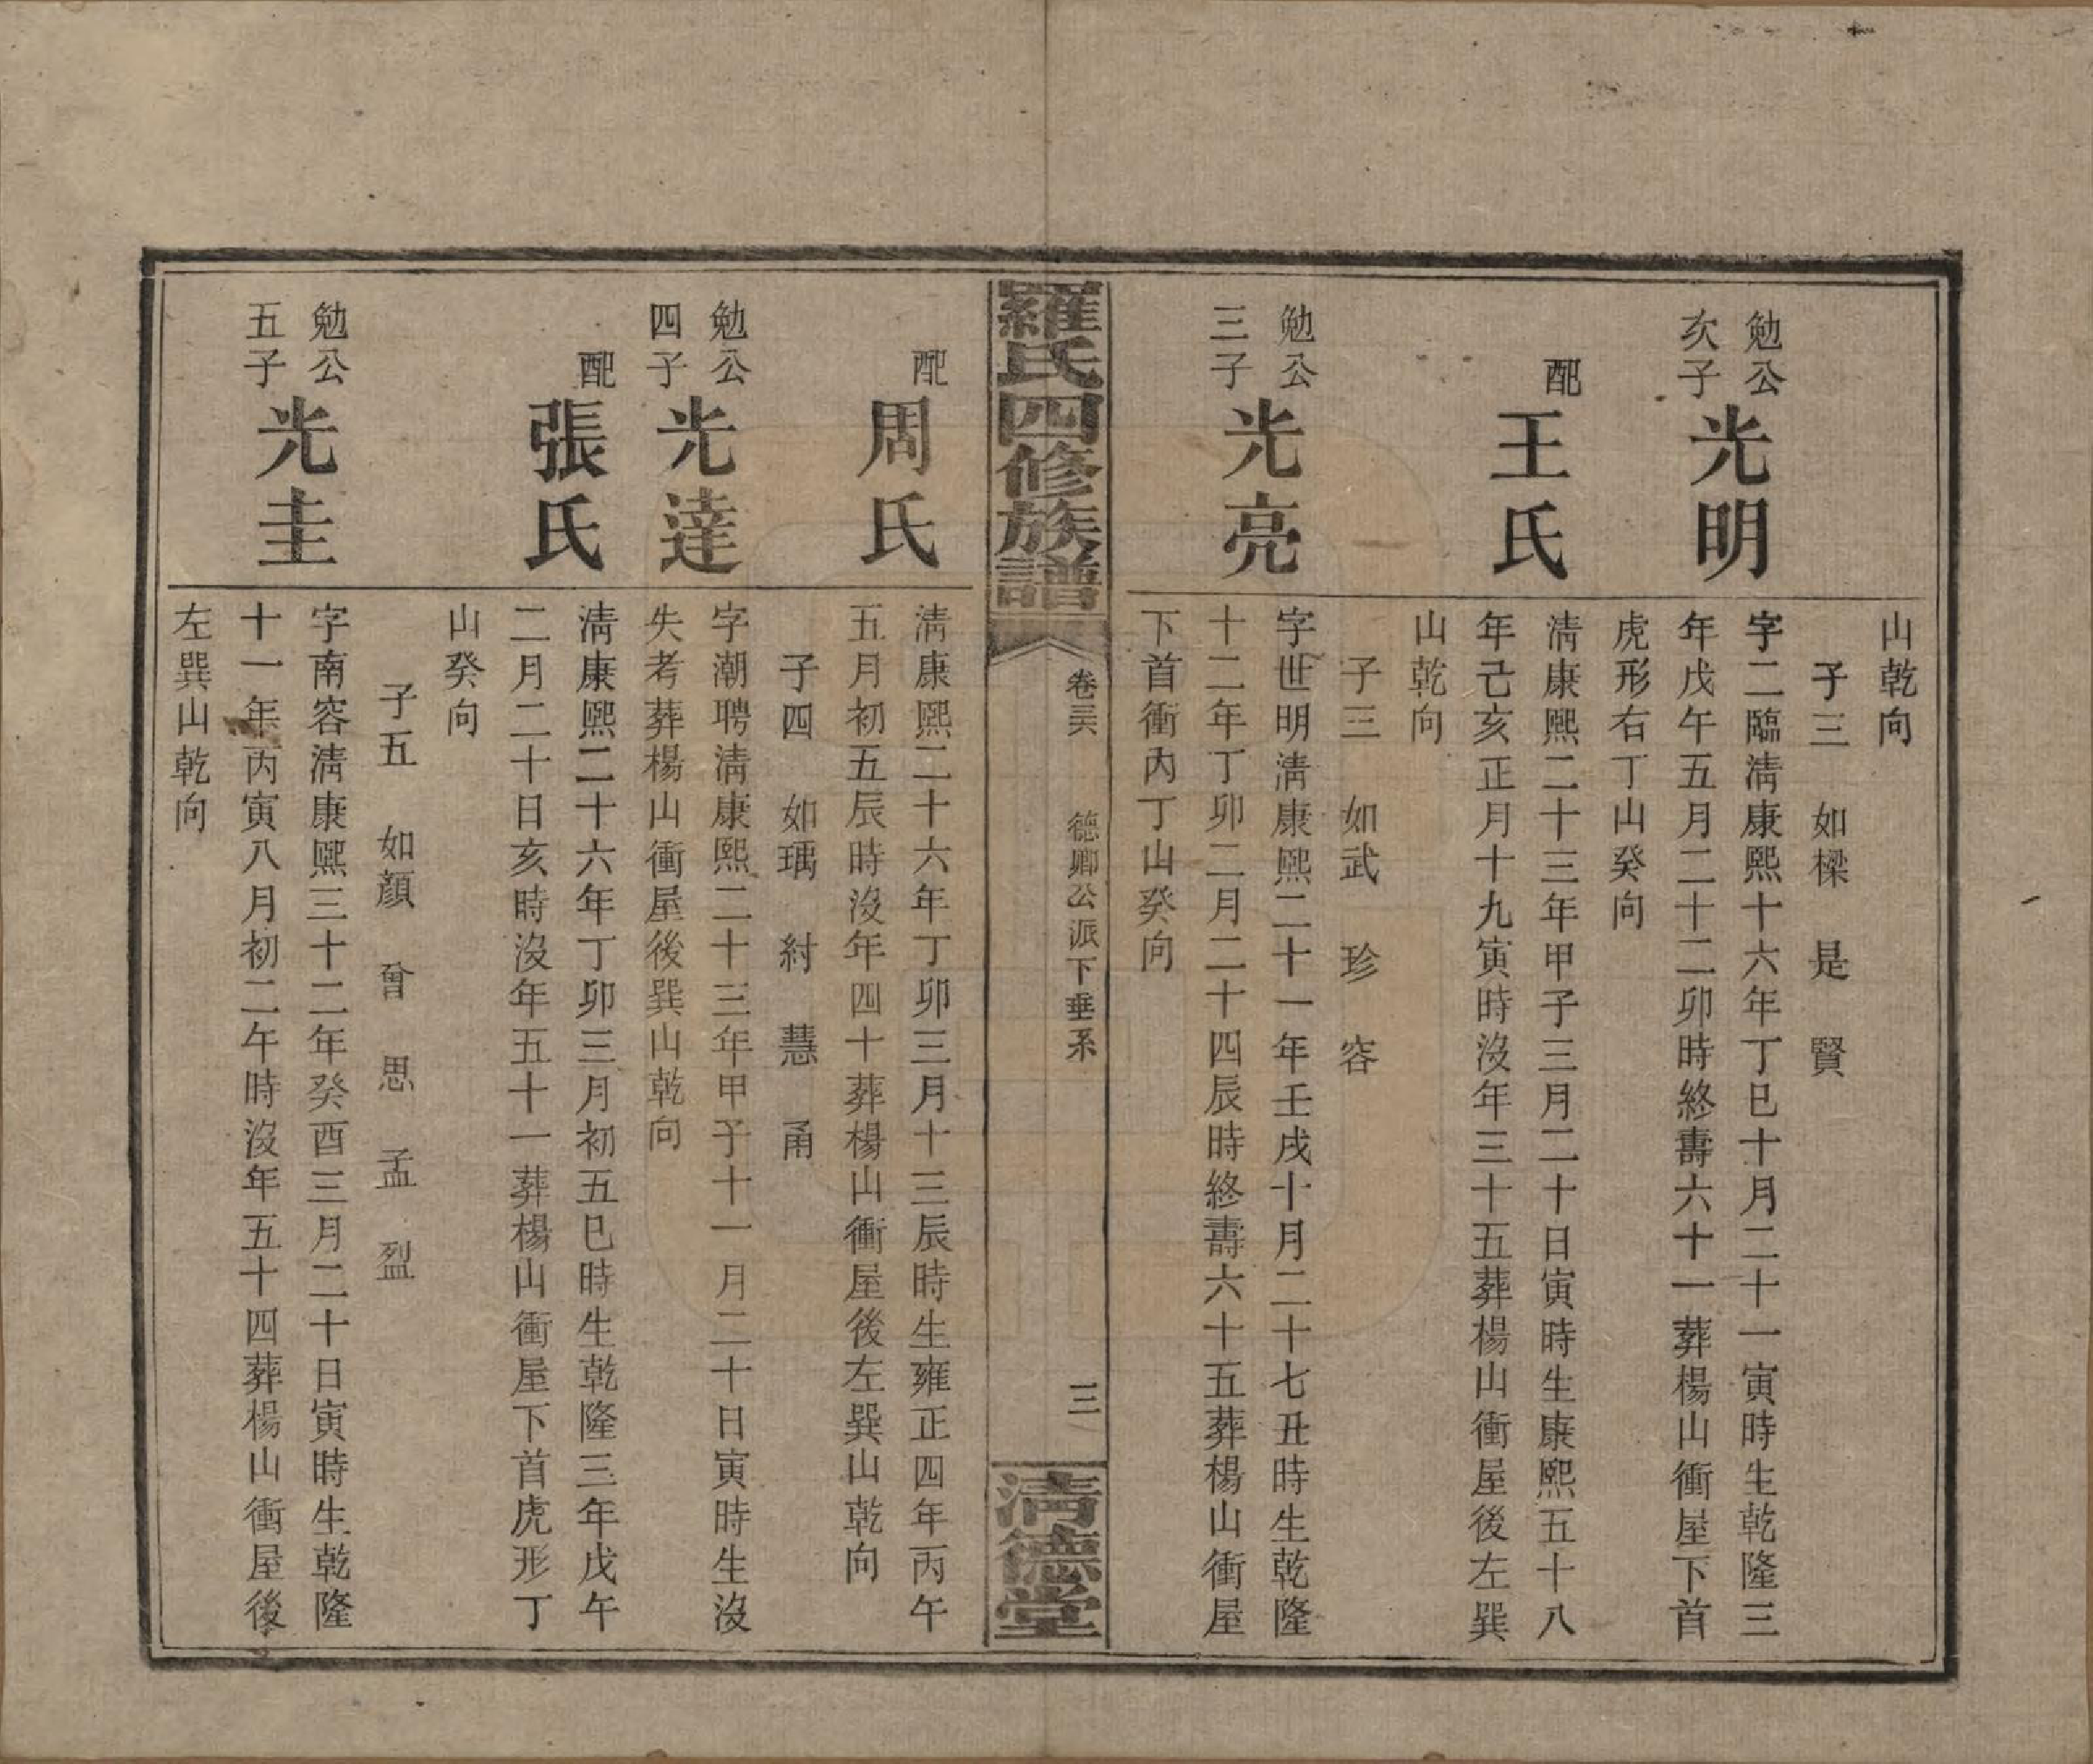 山乾向
子三　如樑　是　賢
勉公
次子
光明
字二臨淸康熙十六年丁巳十月二十一寅時生乾隆三
年戊午五月二十二卯時終壽六十一葬楊山衝屋下首
虎形右丁山癸向
配
王氏
淸康熙二十三年甲子三月二十日寅時生康熙五十八
年己亥正月十九寅時沒年三十五葬楊山衝屋後左巽
山乾向
子三　如武　珍　容
勉公
三子
光亮
字世明淸康熙二十一年壬戌十月二十七丑時生乾隆
十二年丁卯二月二十四辰時終壽六十五葬楊山衝屋
下首衝內丁山癸向
羅氏四修族譜
卷三六
德卿公派下垂系
三
淸德堂
配
周氏
淸康熙二十六年丁卯三月十三辰時生雍正四年丙午
五月初五辰時沒年四十葬楊山衝屋後左巽山乾向
子四　如瑀　紂　慧　甬
勉公
四子
光達
字潮聘淸康熙二十三年甲子十一月二十日寅時生沒
失考葬楊山衝屋後巽山乾向
配
張氏
淸康熙二十六年丁卯三月初五巳時生乾隆三年戊午
二月二十日亥時沒年五十一葬楊山衝屋下首虎形丁
山癸向
子五　如顏　曾　思　孟　烈
勉公
五子
光圭
字南容淸康熙三十二年癸酉三月二十日寅時生乾隆
十一年丙寅八月初二午時沒年五十四葬楊山衝屋後
左巽山乾向